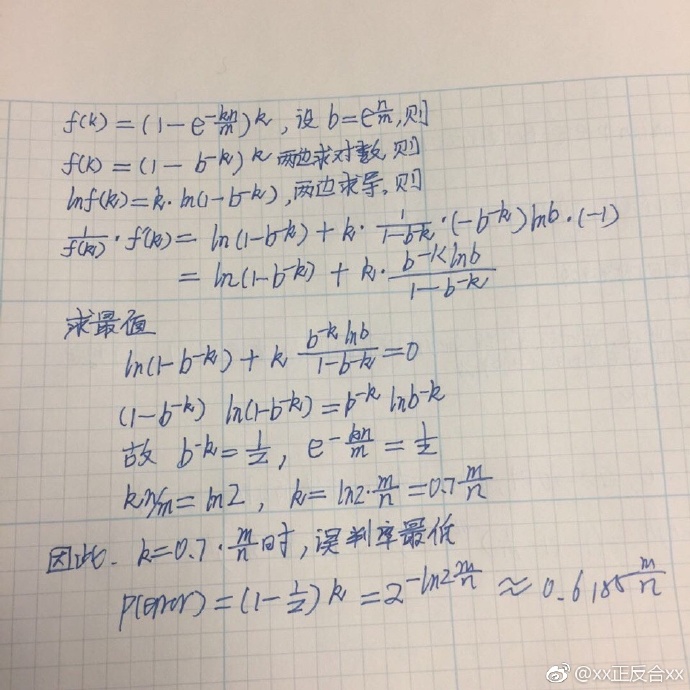 f(k) = (1 - e^{-\frac{kn}{m}})^k, 设 b = e^{\frac{n}{m}}, 则
f(k) = (1 - b^{-k})^k 两边求对数, 则
lnf(k) = k · ln(1 - b^{-k}), 两边求导, 则
\frac{1}{f(k)} · f'(k) = ln(1 - b^{-k}) + k · \frac{1}{1 - b^{-k}} · (-b^{-k}) lnb · (-1)
= ln(1 - b^{-k}) + k · \frac{b^{-k} lnb}{1 - b^{-k}}
求最值
ln(1 - b^{-k}) + k \frac{b^{-k} lnb}{1 - b^{-k}} = 0
(1 - b^{-k}) ln(1 - b^{-k}) = b^{-k} lnb^{-k}
故 b^{-k} = \frac{1}{2}, e^{-\frac{kn}{m}} = \frac{1}{2}
kn/m = ln2, k = ln2 · \frac{m}{n} = 0.7 \frac{m}{n}
因此. k = 0.7 · \frac{m}{n} 时, 误判率最低
P(error) = (1 - \frac{1}{2})^k = 2^{-ln2 \frac{m}{n}} ≈ 0.6185^{\frac{m}{n}}
@xx正反合xx